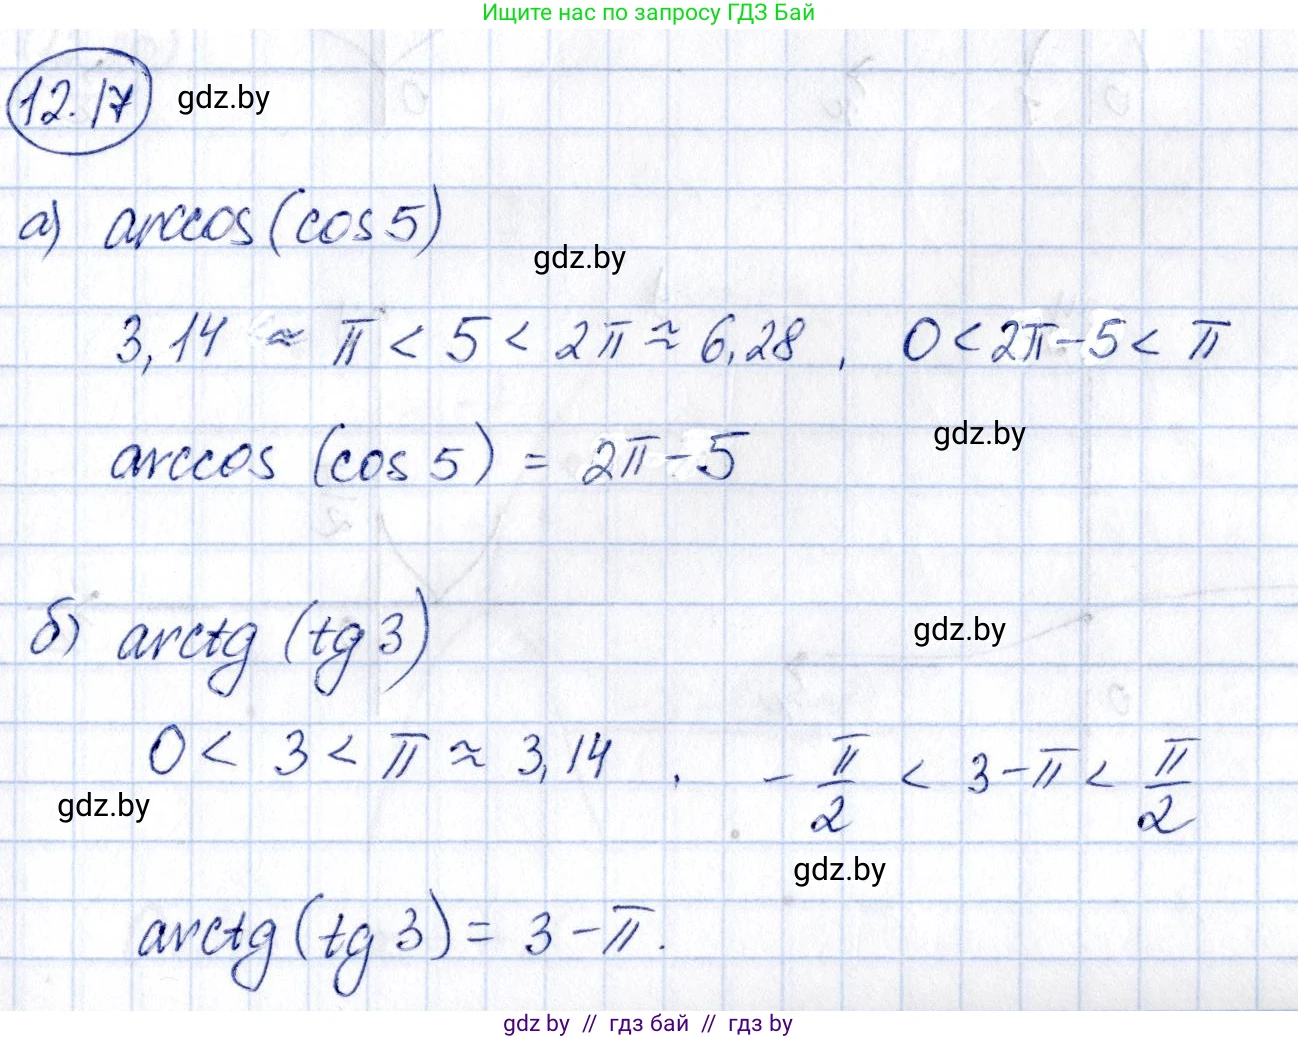 Ищите нас по запросу ГДЗ Бай
12.17 gdz.by
а) arccos(cos 5)
gdz.by
3,14 ≈ π < 5 < 2π ≈ 6,28 , 0 < 2π - 5 < π
gdz.by
arccos (cos 5) = 2π - 5
б) arctg (tg 3)
gdz.by
0 < 3 < π ≈ 3,14 , - π/2 < 3 - π < π/2
gdz.by
gdz.by
arctg (tg 3) = 3 - π.
gdz.by // гдз бай // гдз by